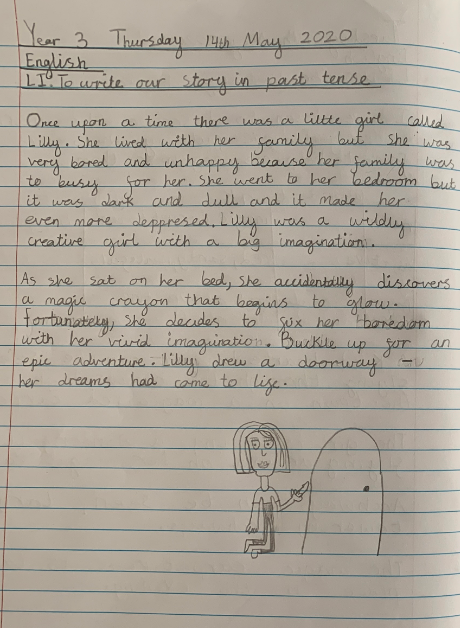 Year 3 Thursday 14th May 2020
English
LI: To write our story in past tense
Once upon a time there was a little girl called
Lilly. She lived with her family but she was
very bored and unhappy because her family was
to busy for her. She went to her bedroom but
it was dark and dull and it made her
even more deppresed. Lilly was a wildly
creative girl with a big imagination.
As she sat on her bed, she accidentally discovers
a magic crayon that begins to glow.
Fortunately, she decides to fix her boredom
with her vivid imagination. Buckle up for an
epic adventure. Lilly drew a doorway –
her dreams had came to life.